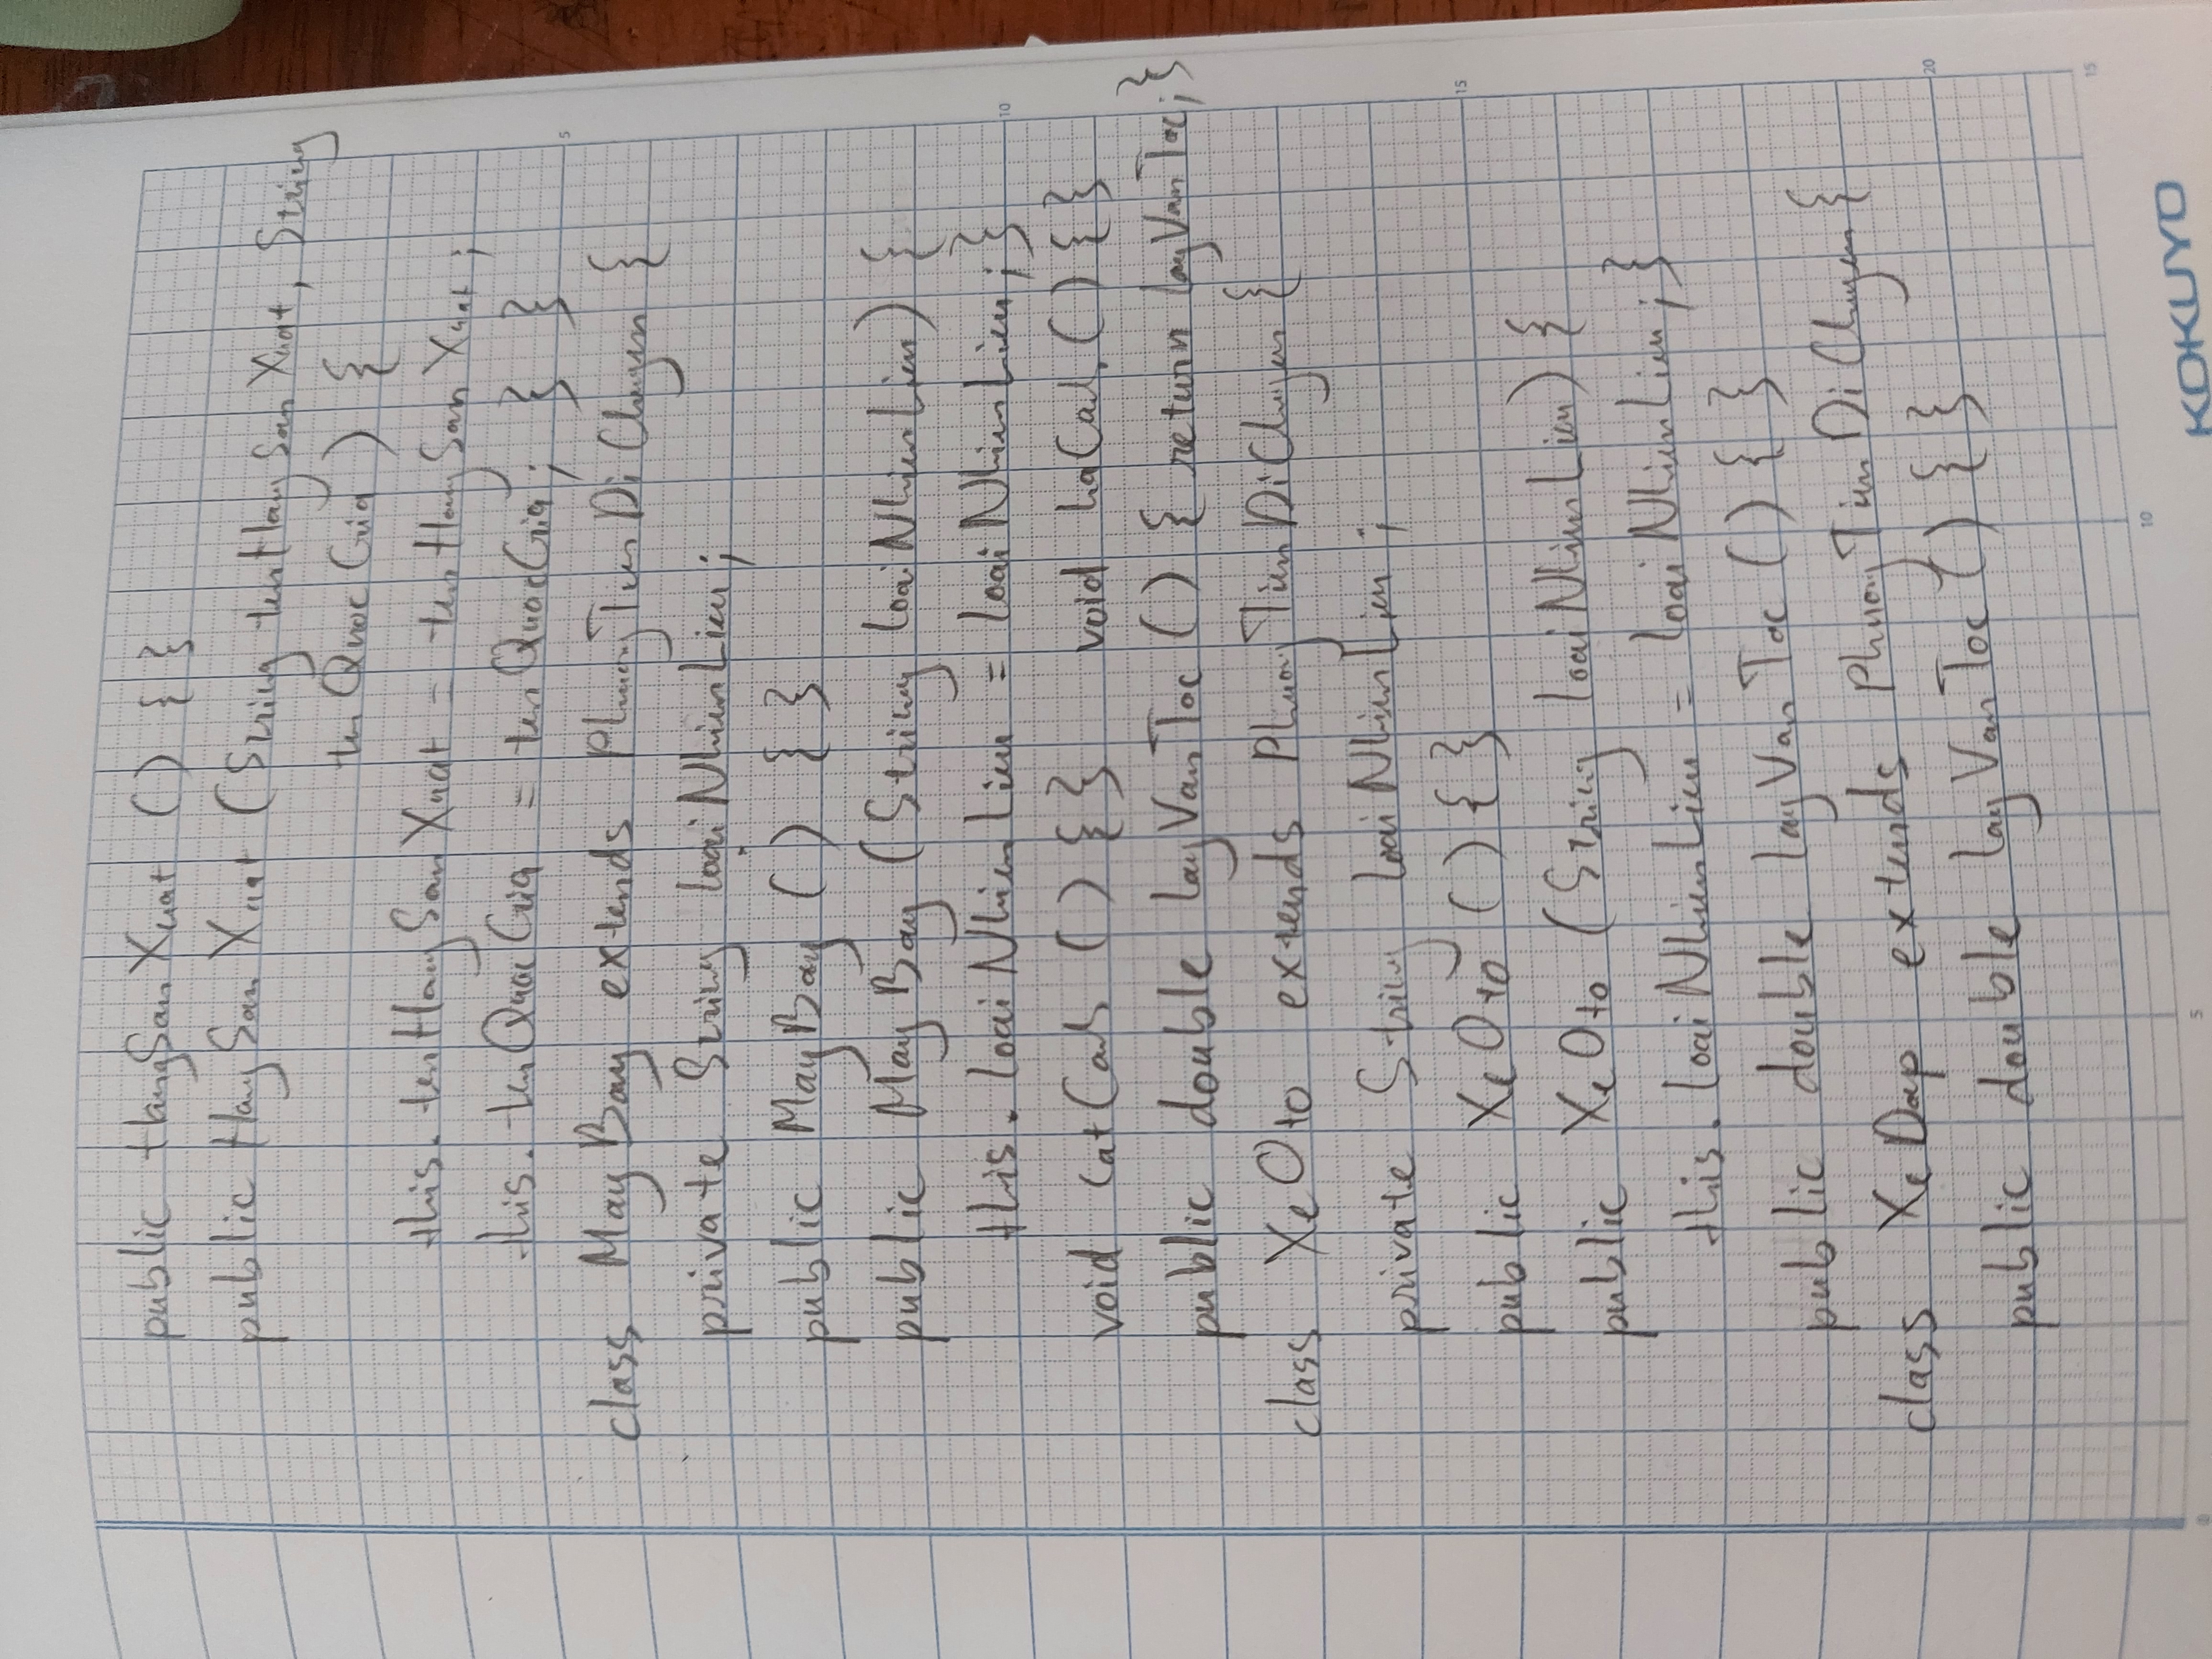 public HangSanXuat () { }
public HangSanXuat (String tenHangSanXuat, String
tenQuocGia) {
this.tenHangSanXuat = tenHangSanXuat;
this.tenQuocGia = tenQuocGia; } }
class MayBay extends PhuongTienDiChuyen {
private String loaiNhienLieu;
public MayBay () { }
public MayBay (String loaiNhienLieu) {
this.loaiNhienLieu = loaiNhienLieu; }
void catCanh () { } void haCanh () { }
public double layVanToc () { return layVanToc; }
class XeOto extends PhuongTienDiChuyen {
private String loaiNhienLieu;
public XeOto () { }
public XeOto (String loaiNhienLieu) {
this.loaiNhienLieu = loaiNhienLieu; }
public double layVanToc () { }
class XeDap extends PhuongTienDiChuyen {
public double layVanToc () { }
5
10
15
20
0 5 10 15
KOKUYO